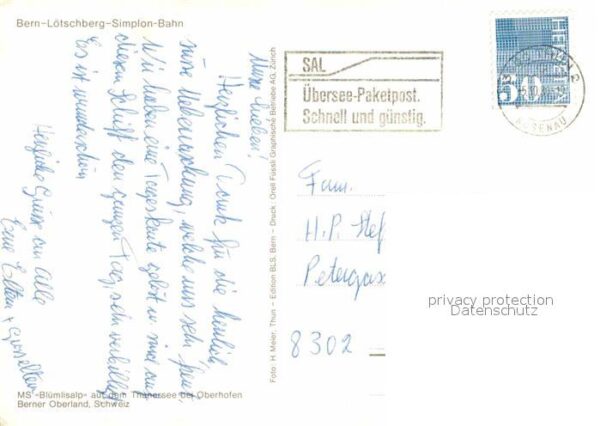 Bern-Lötschberg-Simplon-Bahn
Meine Lieben!
Herzlichen Dank für die herrlich
Ueberraschung, welche uns sehr freut,
Wir haben eine Tageskarte gelöst u. sind auf
diesem Schiff den ganzen Tag, sehr
Es ist wunderschön
Herzliche Grüsse an Alle
Eure Eltern +
MS «Blümlisalp» auf dem Thunersee bei Oberhofen
Berner Oberland, Schweiz
Foto: H. Meier, Thun – Edition BLS, Bern – Druck: Orell Füssli Graphische Betriebe AG, Zürich
SAL
Übersee-Paketpost.
Schnell und günstig.
HELVETIA
50
Fam.
H.P. Hef
Petergas
8302
privacy protection
Datenschutz